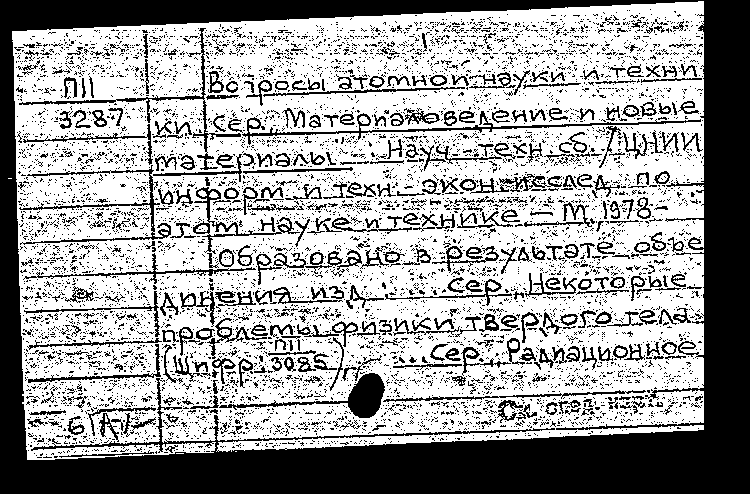 1
П11
3287
Вопросы атомной науки и техни
ки. Сер. „Материаловедение и новые
материалы : Науч.-техн. сб. / ЦНИИ
информ. и техн.-экон. исслед. по
атом. науке и технике – М., 1978 –
Образовано в результате объе
динения изд. : ... Сер. „Некоторые
проблемы физики твердого тела
(Шифр: П11 3085), ... Сер. „Радиационное
б/А/
См. след. карт.